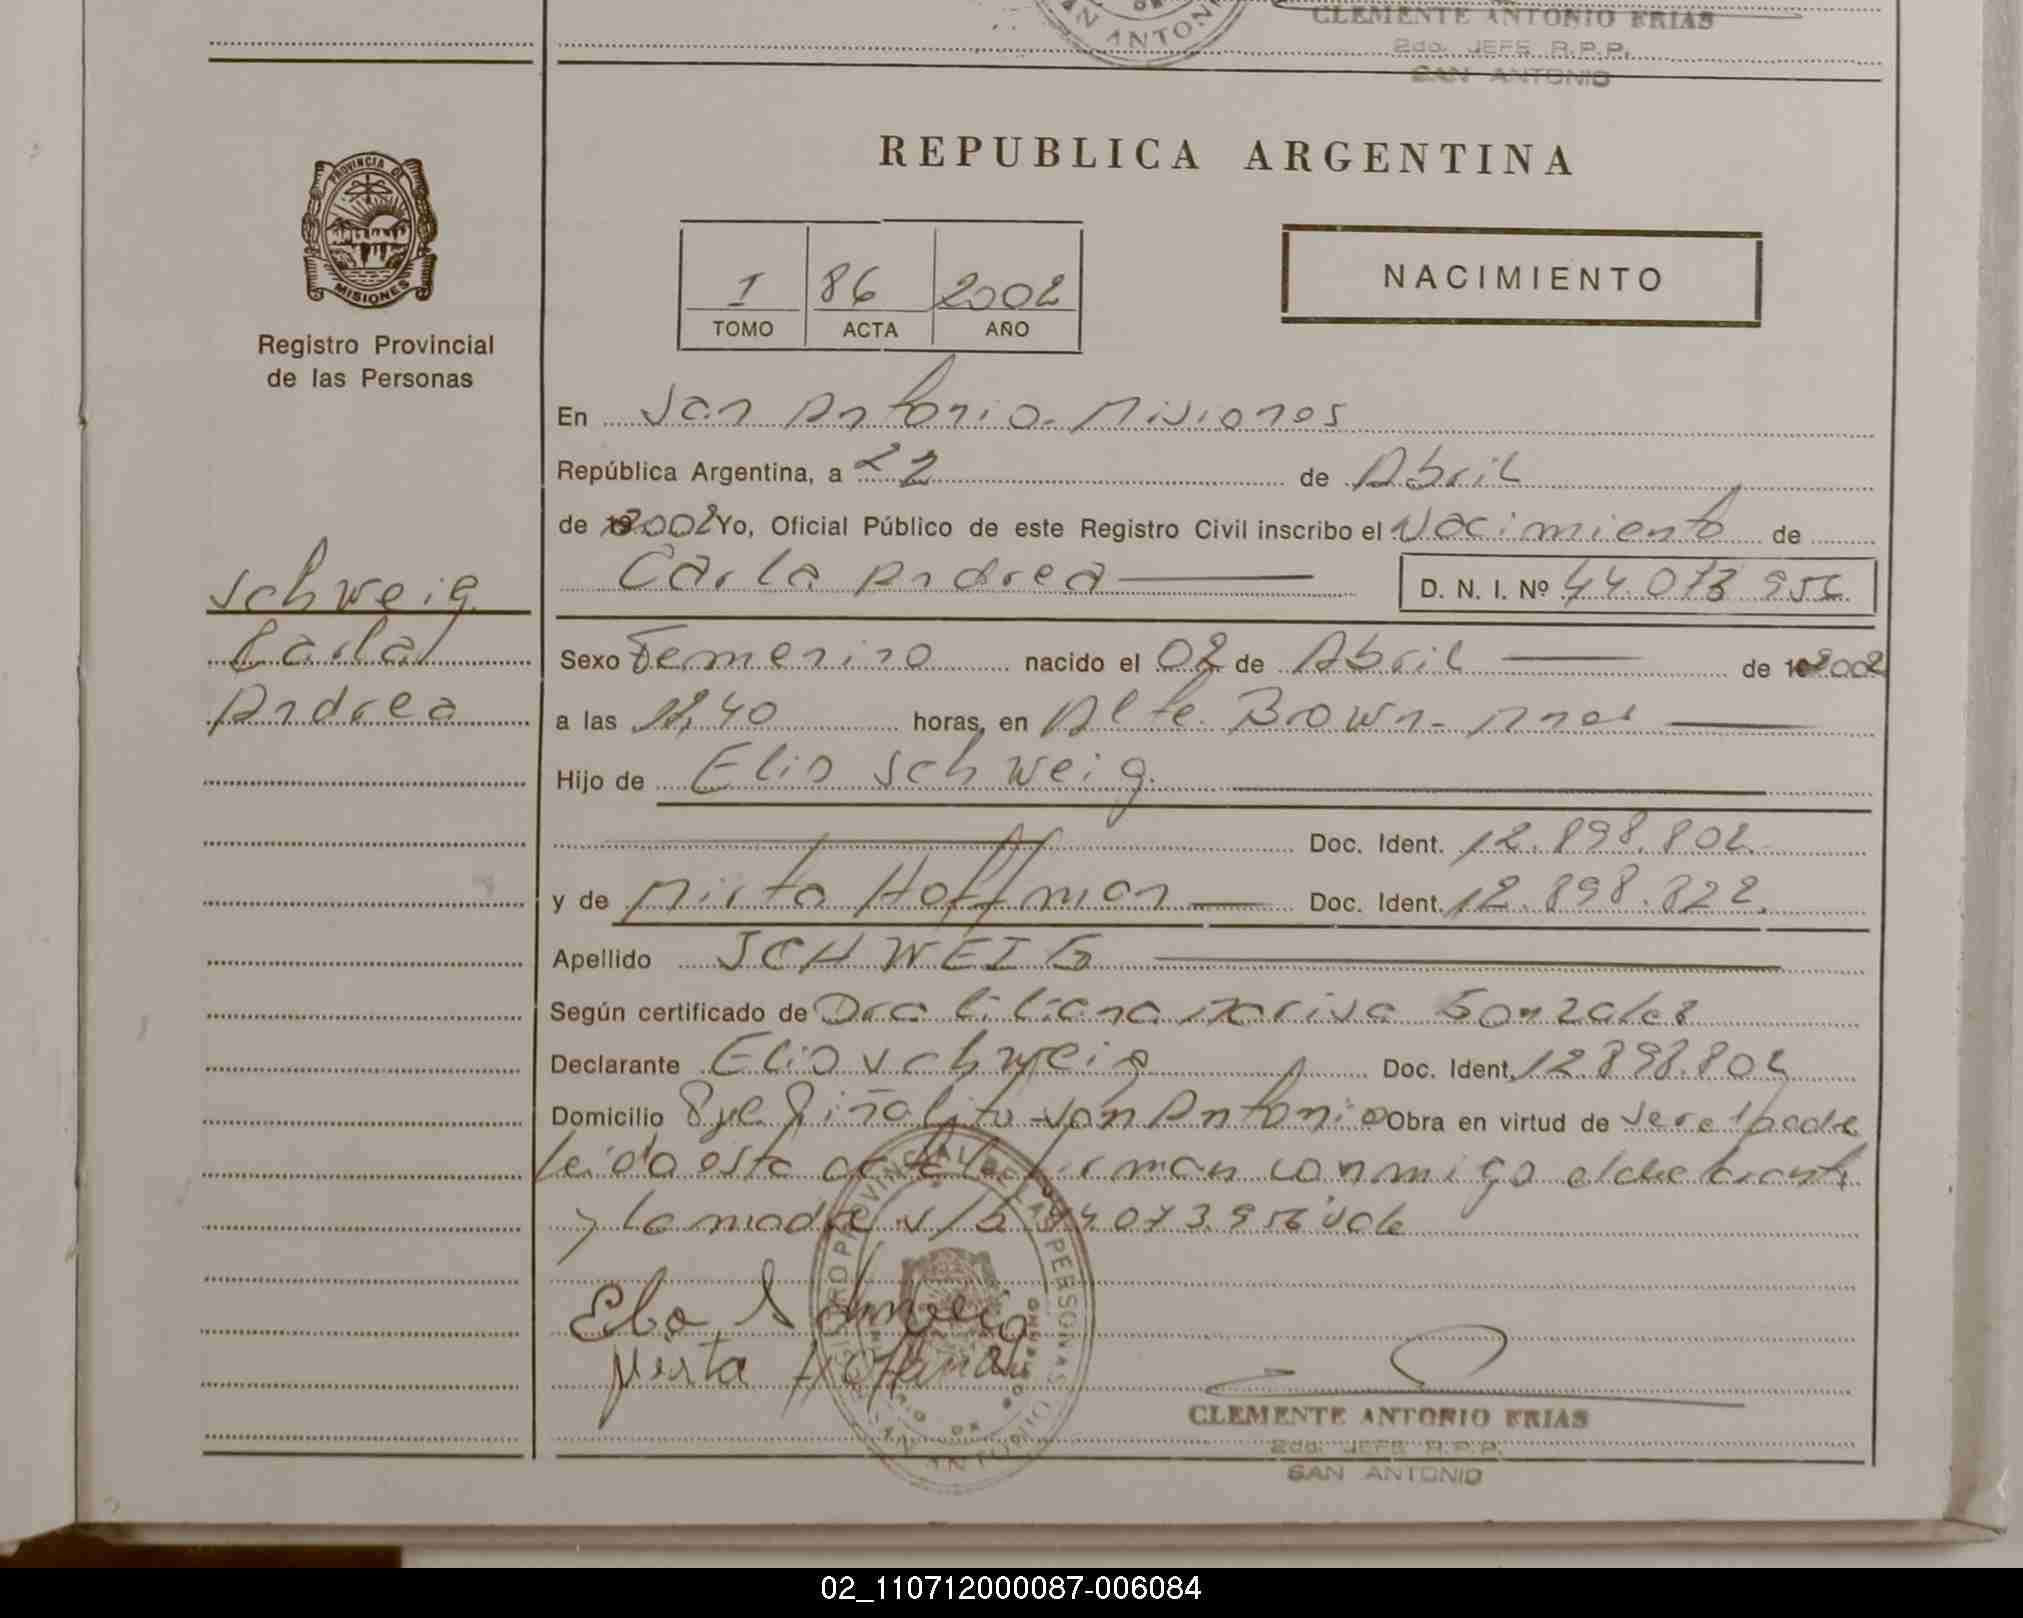 CLEMENTE ANTONIO FRIAS
2do. JEFE R.P.P.
SAN ANTONIO
SAN ANTONIO
PROVINCIA DE
MISIONES
Registro Provincial
de las Personas
REPUBLICA ARGENTINA
1 86 2002
TOMO ACTA AÑO
NACIMIENTO
En San Antonio - Misiones
República Argentina, a 22 de Abril
de 2002 Yo, Oficial Público de este Registro Civil inscribo el Nacimiento de
Carla Andrea D. N. I. Nº 44.073 956
Schweig
Carla
Andrea
Sexo Femenino nacido el 02 de Abril de 2002
a las 12,40 horas, en Alte. Brown - Mnes
Hijo de Elio Schweig.
Doc. Ident. 12.898.802.
y de Mirta Hoffman Doc. Ident. 12.898.822.
Apellido SCHWEIG
Según certificado de Dra Liliana Marisa Gonzales
Declarante Elio Schweig Doc. Ident. 12.898.802
Domicilio Pje Piñalito San Antonio Obra en virtud de ser el padre
leida esta acta la firman conmigo el declarante
y la madre s/b 44 073.956 vale
Elio Schweig
Mirta Hoffman
REGISTRO PROVINCIAL DE LAS PERSONAS
SAN ANTONIO
CLEMENTE ANTONIO FRIAS
2do. JEFE R.P.P.
SAN ANTONIO
02_110712000087-006084